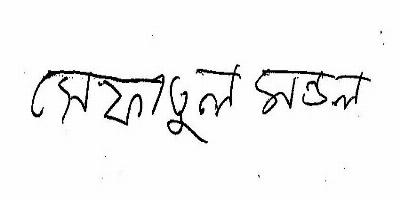 সেফাতুল মন্ডল